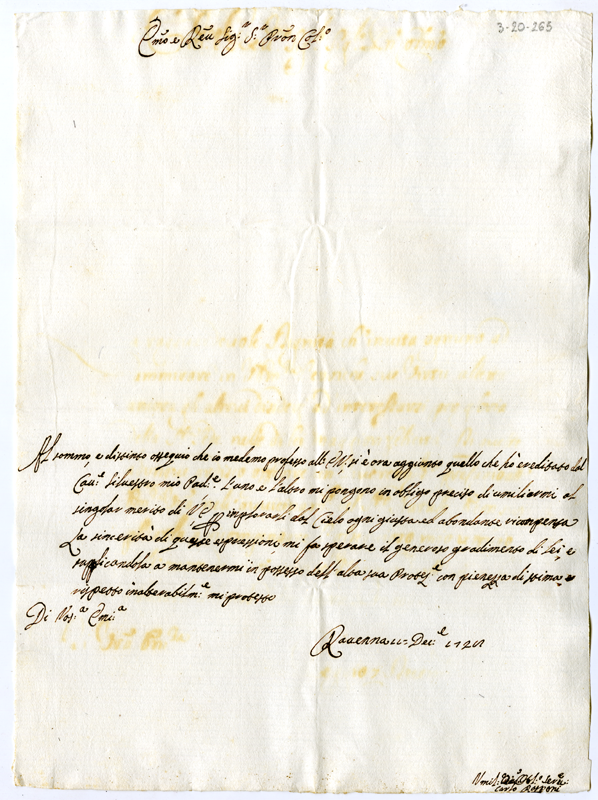 3-20-265
Em̃o e Reũ Sig:r S:r Pron Col:o
Al sommo, e distinto osseguio che io medemo professo all' E.V. si è ora aggionto quello che hò ereditato dal
Cau:r Siluestro mio Pad:e L'uno e l'altro mi pongono in obligo preciso di umiliarmi al
singolar merito di V.E. implorarli dal Cielo ogni giusta ed abondante ricompensa
La sincerità di queste espressioni, mi fa sperare il generoso gradimento di Lei, e
supplicandola a mantenermi in possesso dell' alta sua Protez:e con pienezza di stima e
rispetto inalterabilm:e mi protesto
Di Vos:a Emi:a
Ravenna 11 Dec:e 172
Umil:
Carlo